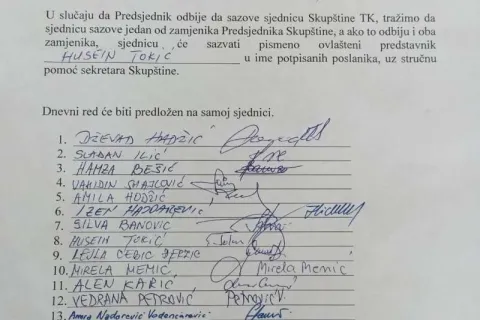 U slučaju da Predsjednik odbije da sazove sjednicu Skupštine TK, tražimo da
sjednicu sazove jedan od zamjenika Predsjednika Skupštine, a ako to odbiju i oba
zamjenika, sjednicu će sazvati pismeno ovlašteni predstavnik
HUSEIN TOKIĆ u ime potpisanih poslanika, uz stručnu
pomoć sekretara Skupštine.
Dnevni red će biti predložen na samoj sjednici.
1. DŽEVAD HADŽIĆ
2. SLAĐAN ILIĆ
3. HAMZA BEŠIĆ
4. VAHIDIN SMAJLOVIĆ
5. AMILA HODŽIĆ
6. IZEN HAJDAREVIĆ
7. SILVA BANOVIĆ
8. HUSEIN TOKIĆ
9. LEJLA CERIĆ
10. MIRELA MEMIĆ, Mirela Memić
11. ALEN KARIĆ,
12. VEDRANA PETROVIĆ Petrović V
13. Amra Nadarević Vodenčarević